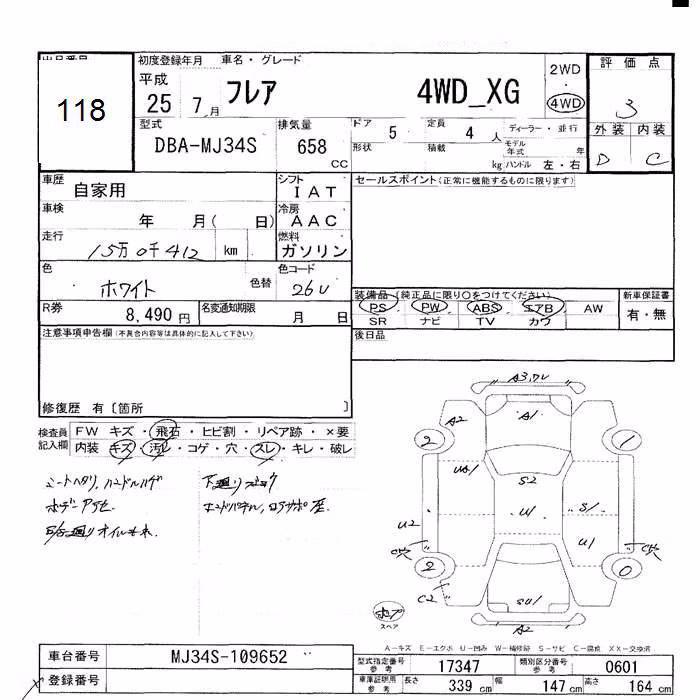 出品番号
118
初度登録年月
平成
25 7 月
車名・グレード
フレア 4WD_XG
2WD
4WD
評価点
3
外装 内装
D C
型式
DBA-MJ34S
排気量
658
CC
ドア
5
形状
定員
4 人
積載
kg
ディーラー・並行
モデル年式 年
ハンドル 左・右
車歴
自家用
シフト
IAT
車検
年 月( 日)
冷房
AAC
走行
15万0千412 km
燃料
ガソリン
色
ホワイト
色替
色コード
26U
R券
8,490 円
名変通知期限
月 日
セールスポイント(正常に機能するものに限ります)
装備品(純正品に限り○をつけてください)
PS PW ABS エアB AW
SR ナビ TV カワ
新車保証書
有・無
後日品
注意事項申告欄(不具合内容等は具体的に記入して下さい)
修復歴 有〔箇所 〕
検査員記入欄
FW キズ・飛石・ヒビ割・リペア跡・×要
内装 キズ・汚レ・コゲ・穴・スレ・キレ・破レ
シートヘタリ、ハンドルハゲ
ボデーアセ
下廻り
A2
A1
2
1
UA1
S2
U1
S1
U2
U1
2
0
C2
SU1
A2
スペア
A-キズ E-エクボ U-凹み W-補修跡 S-サビ C-腐食 XX-交換済
車台番号
MJ34S-109652
登録番号
型式指定番号 参考
17347
類別区分番号 参考
0601
車庫証明用 参考
長さ 339 cm
幅 147 cm
高さ 164 cm